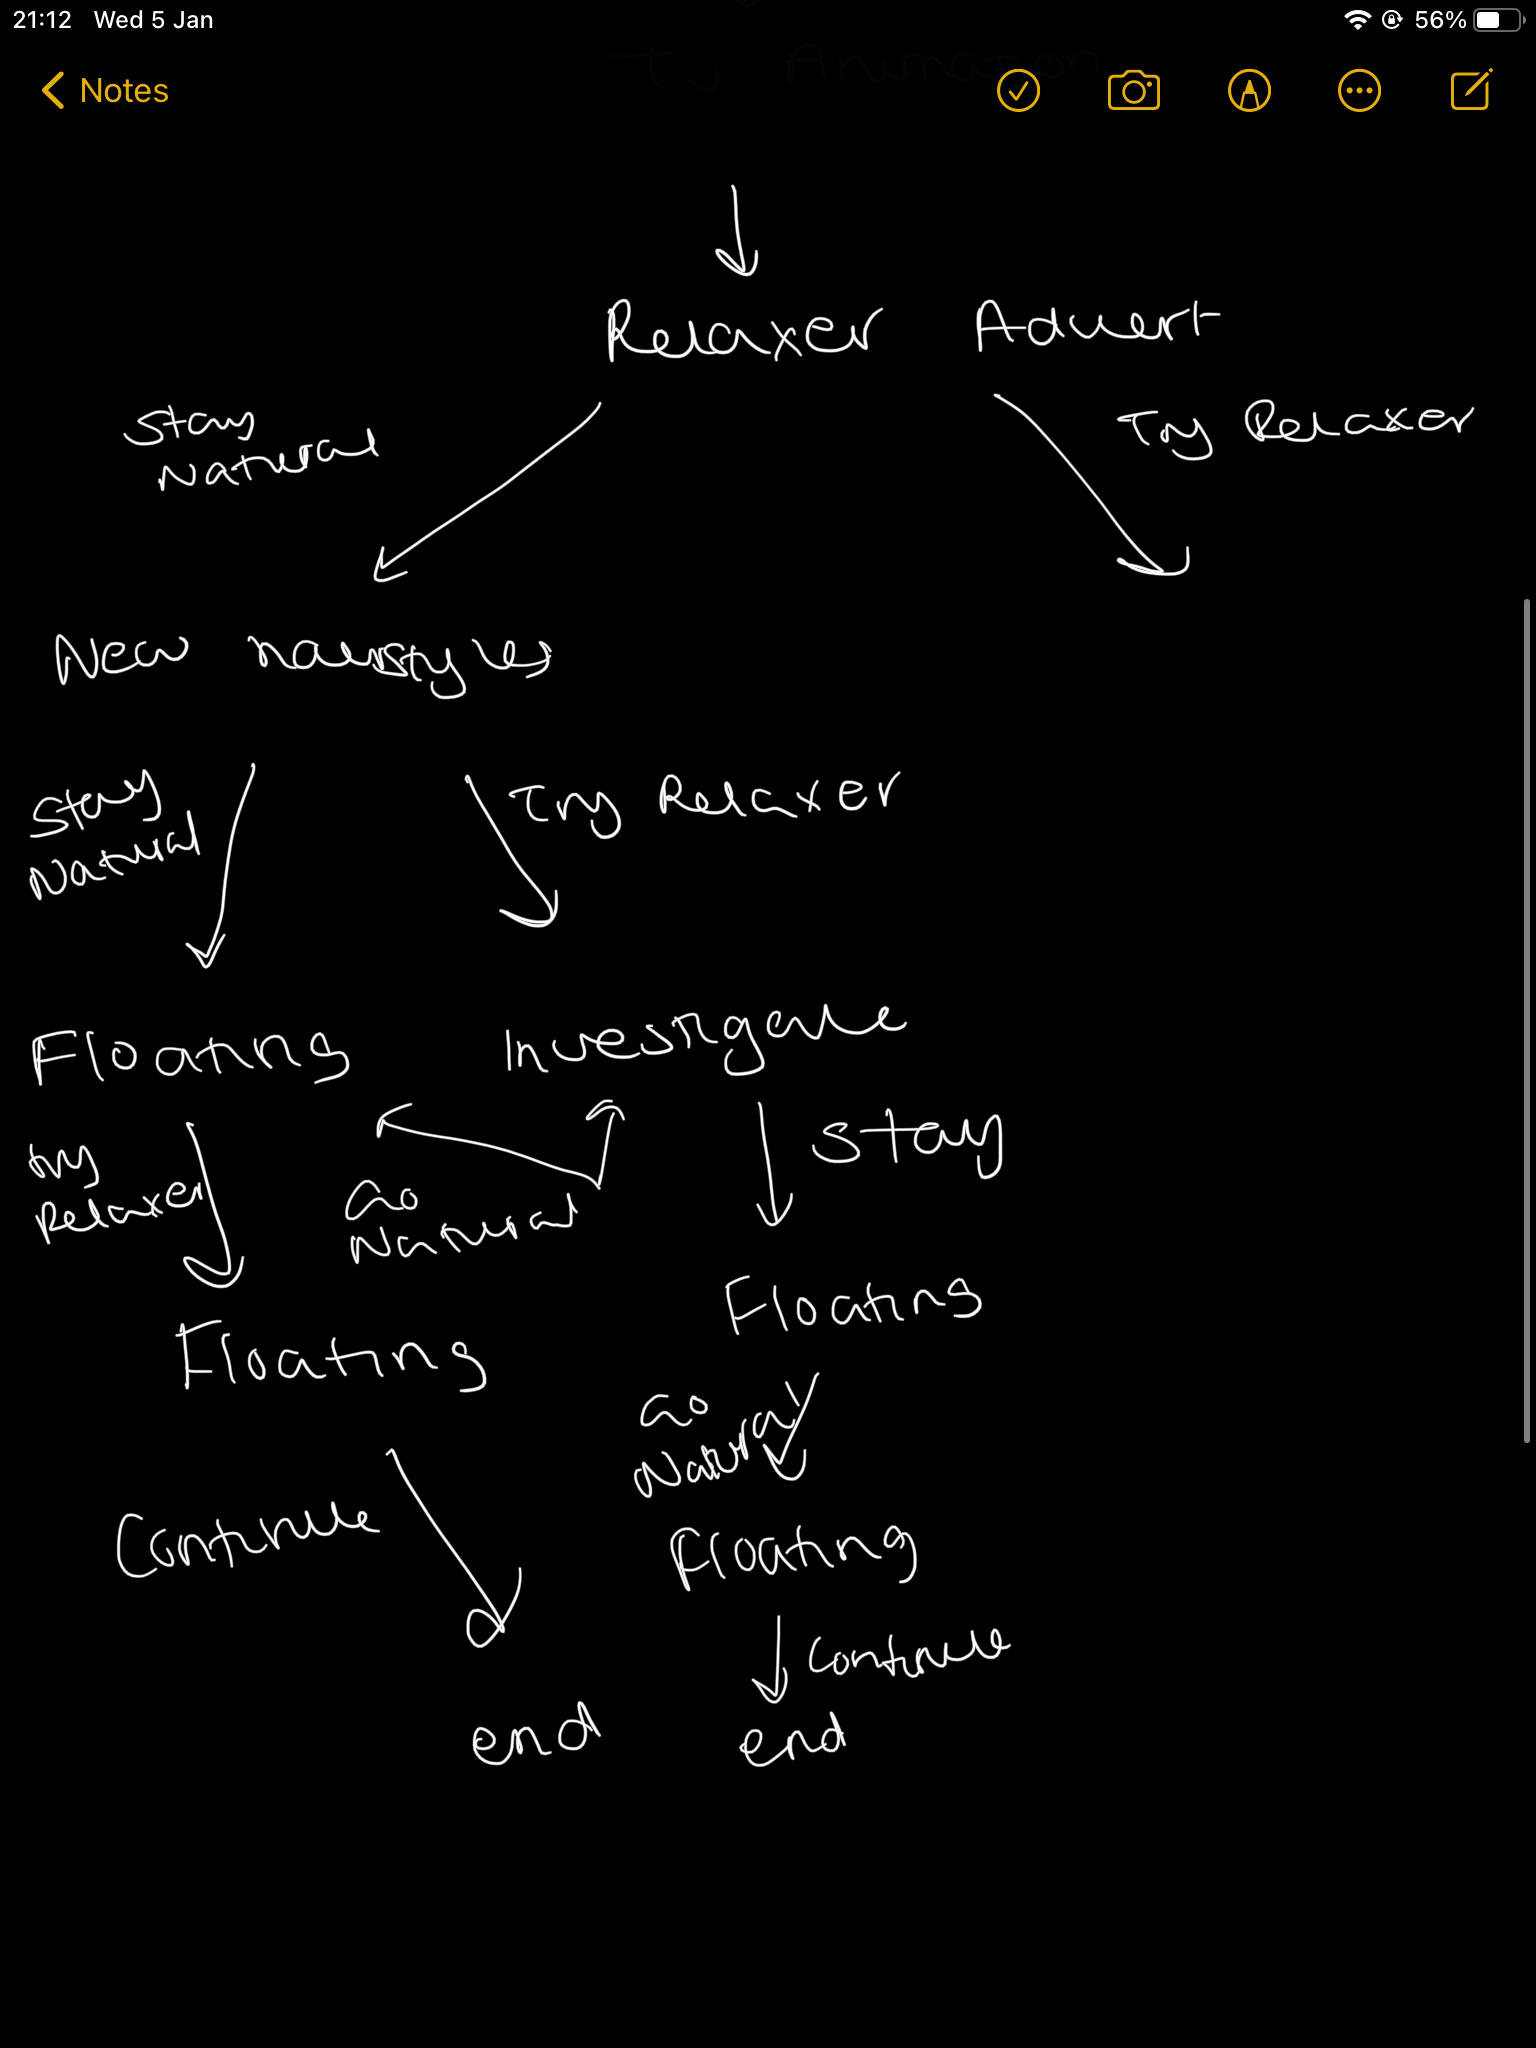 21:12 Wed 5 Jan
56%
TV Animation
Notes
Relaxer Advert
Stay
Natural
Try Relaxer
New hairstyles
Stay
Natural
Try Relaxer
Floating
Investigate
try
Relaxer
Go
Natural
Stay
Floating
Floating
Go
Natural
Continue
Floating
Continue
end
end